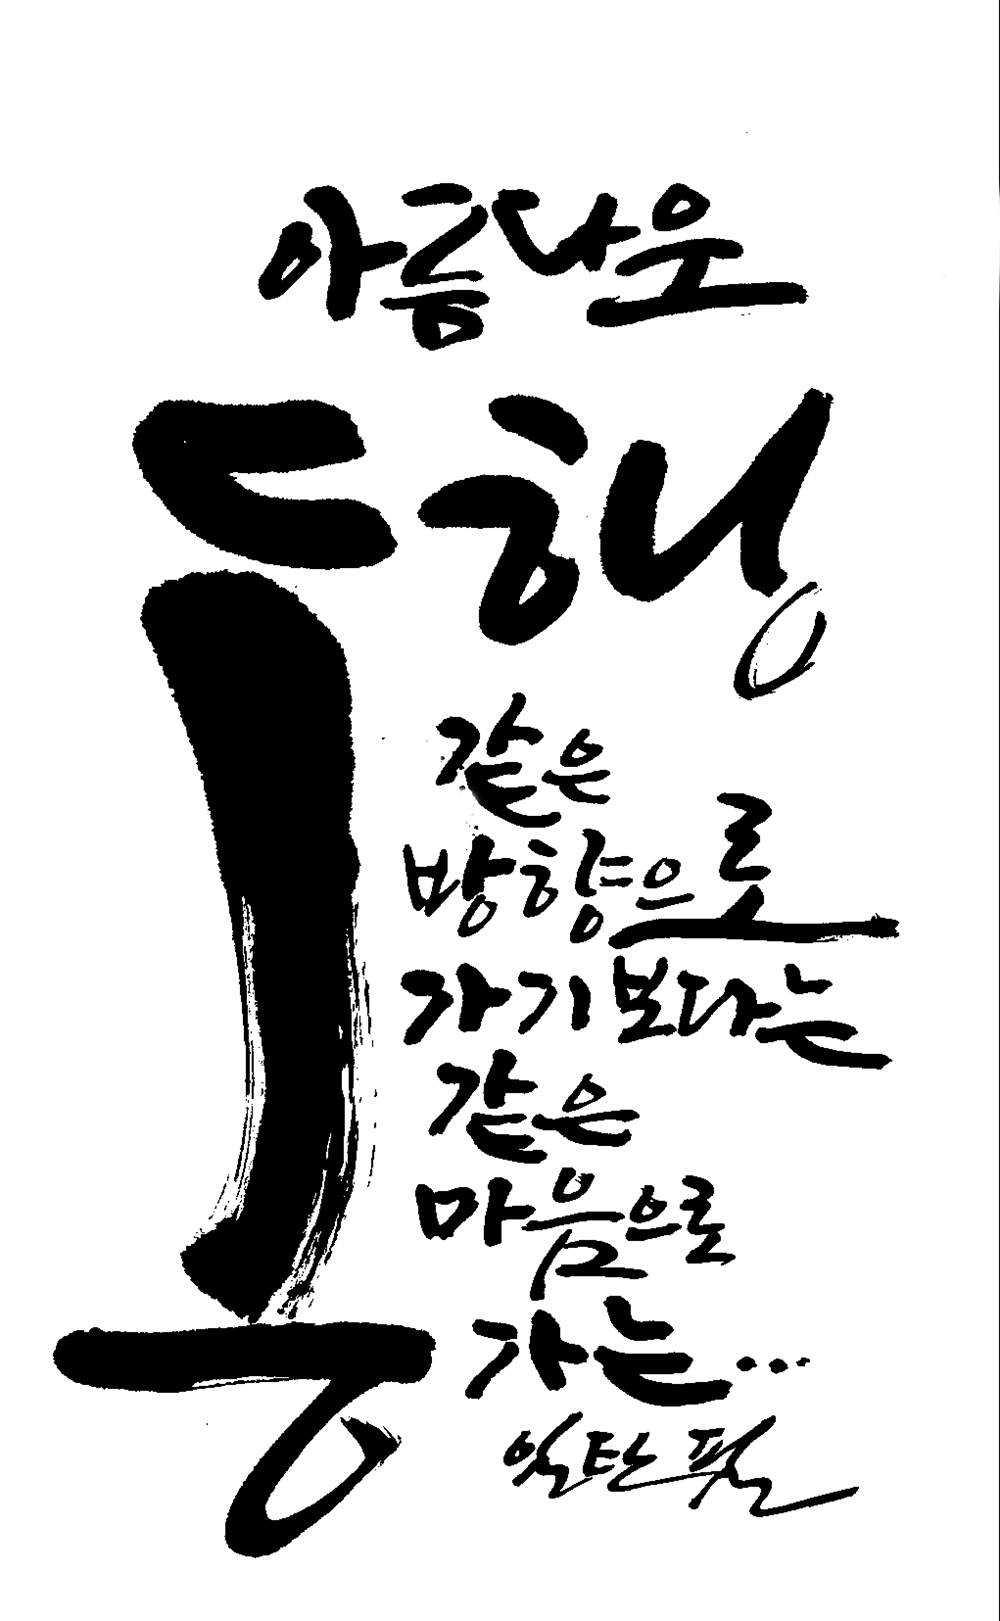 아름다운
동행
같은
방향으로
가기보다는
같은
마음으로
가는...
일탄필